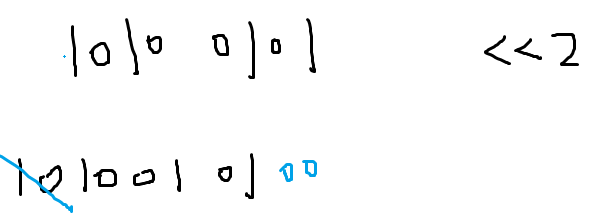 1010 0101 <<2
10100101 00